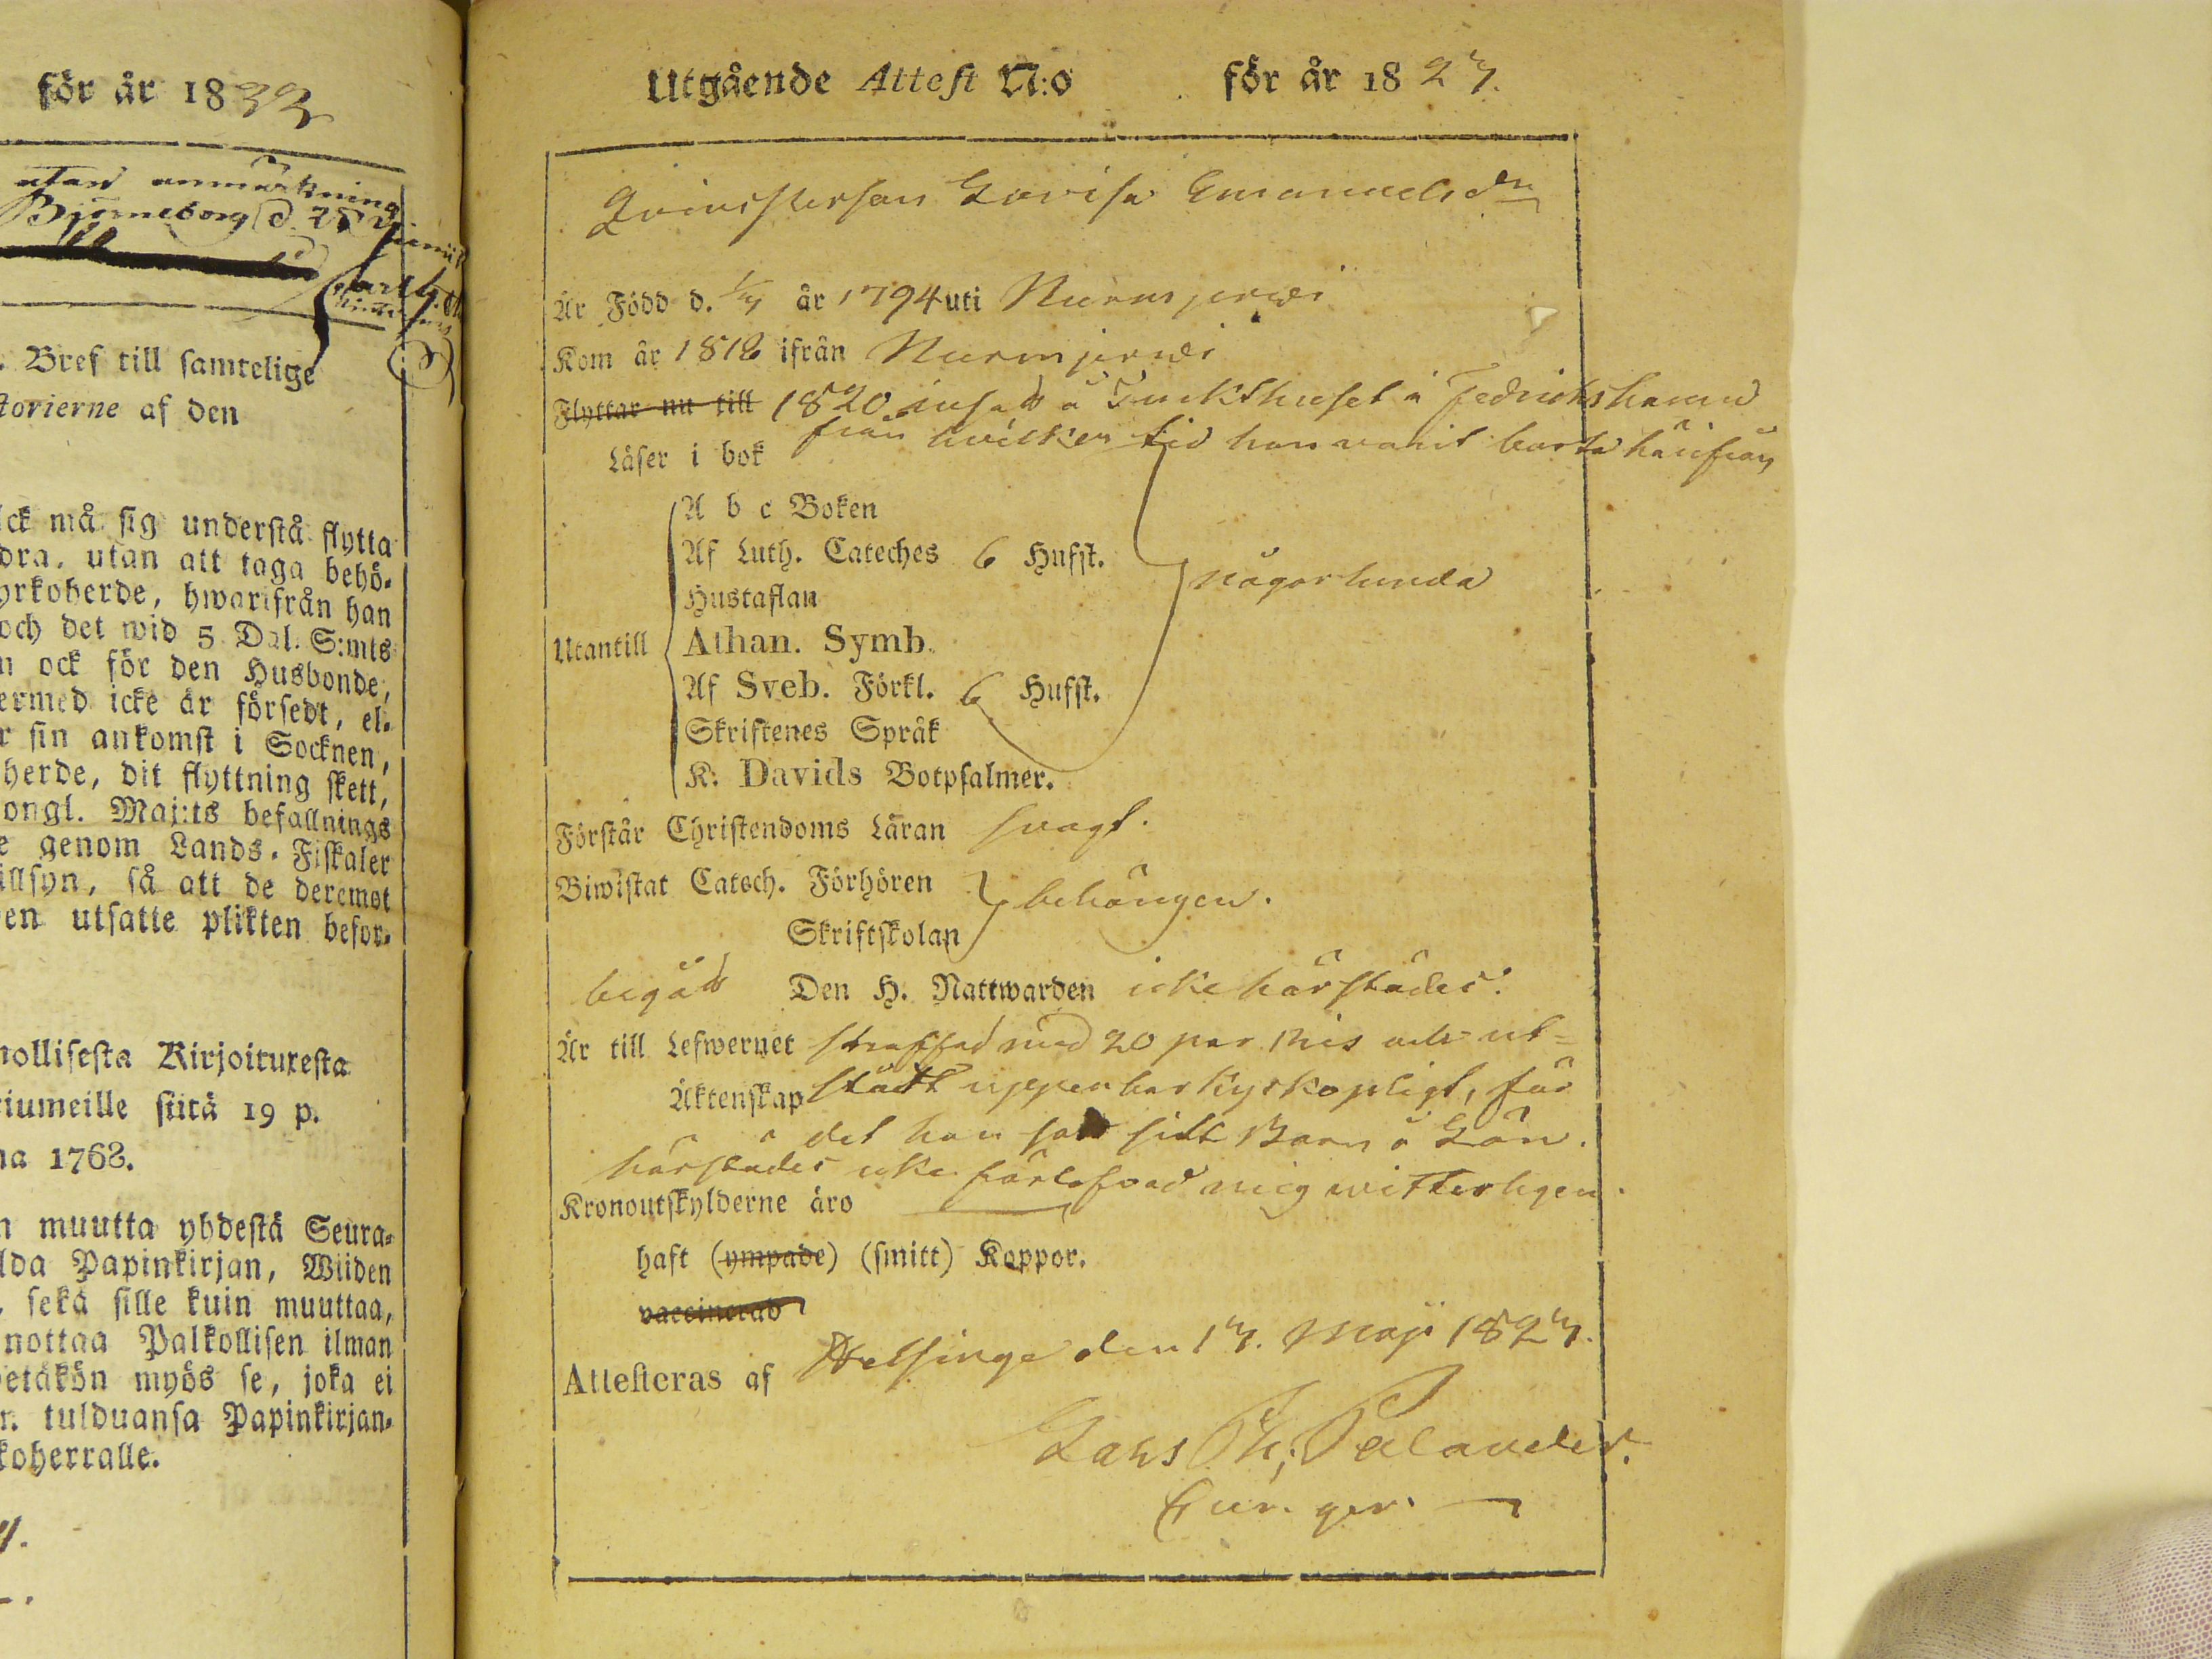 för år 1833
utan anmärkning
Björneborg d. 25
. Bref till samtelige
torierne af den
ick må sig understå flytta
dra, utan att taga behö-
yrkoherde, hwarifrån han
och det wid 5 Dal. S:mts
n ock för den Husbonde,
ermed icke är försedt, el-
r sin ankomst i Socknen,
herde, dit flyttning skett,
ongl. Maj:ts befallnings
e genom Lands-Fiskaler
illsyn, så att de deremot
en utsatte plikten befor-
nollisesta Kirjoituxesta
riumeille siitä 19 p.
na 1768.
n muutta yhdestä Seura-
lda Papinkirjan, Wiiden
, sekä sille kuin muuttaa,
nottaa Palkollisen ilman
etäkön myös se, joka ei
n tulduansa Papinkirjan-
koherralle.
Utgående Attest N:o för år 1827.
Qvinspersan Lovisa Emanuelsdr
Är Född d. 1/7 år 1794 uti Nurmijerwi
Kom år 1818 ifrån Nurmijerwi
Flyttar nu till 1820 insatt å Tuckthuset i Fedrichshamn
från hvilken tid hon varit borta härifrån
Läser i bok
A b c Boken
Af Luth. Cateches 6 Hufst.
Hustaflan någorlunda
Utantill Athan. Symb.
Af Sveb. Förkl. 6 Hufst.
Skriftenes Språk
K. Davids Botpsalmer.
Förstår Christendoms Läran svagt.
Biwistat Catech. Förhören behörigen.
Skriftskolan
begått Den H. Nattwarden icke härstädes.
Är till Lefwernet straffad med 20 par Ris och ut-
Äktenskap stått uppenbar Kyrkopligt, för
det hon satt sitt Barn å Lön.
härstädes icke förlofvad mig witterligen.
Kronoutskylderne äro —
haft (ympade) (smitt) Koppor.
vaccinerad
Attesteras af Helsinge den 17. Maji 1827.
Lars Th. Palander.
Cur. ger.